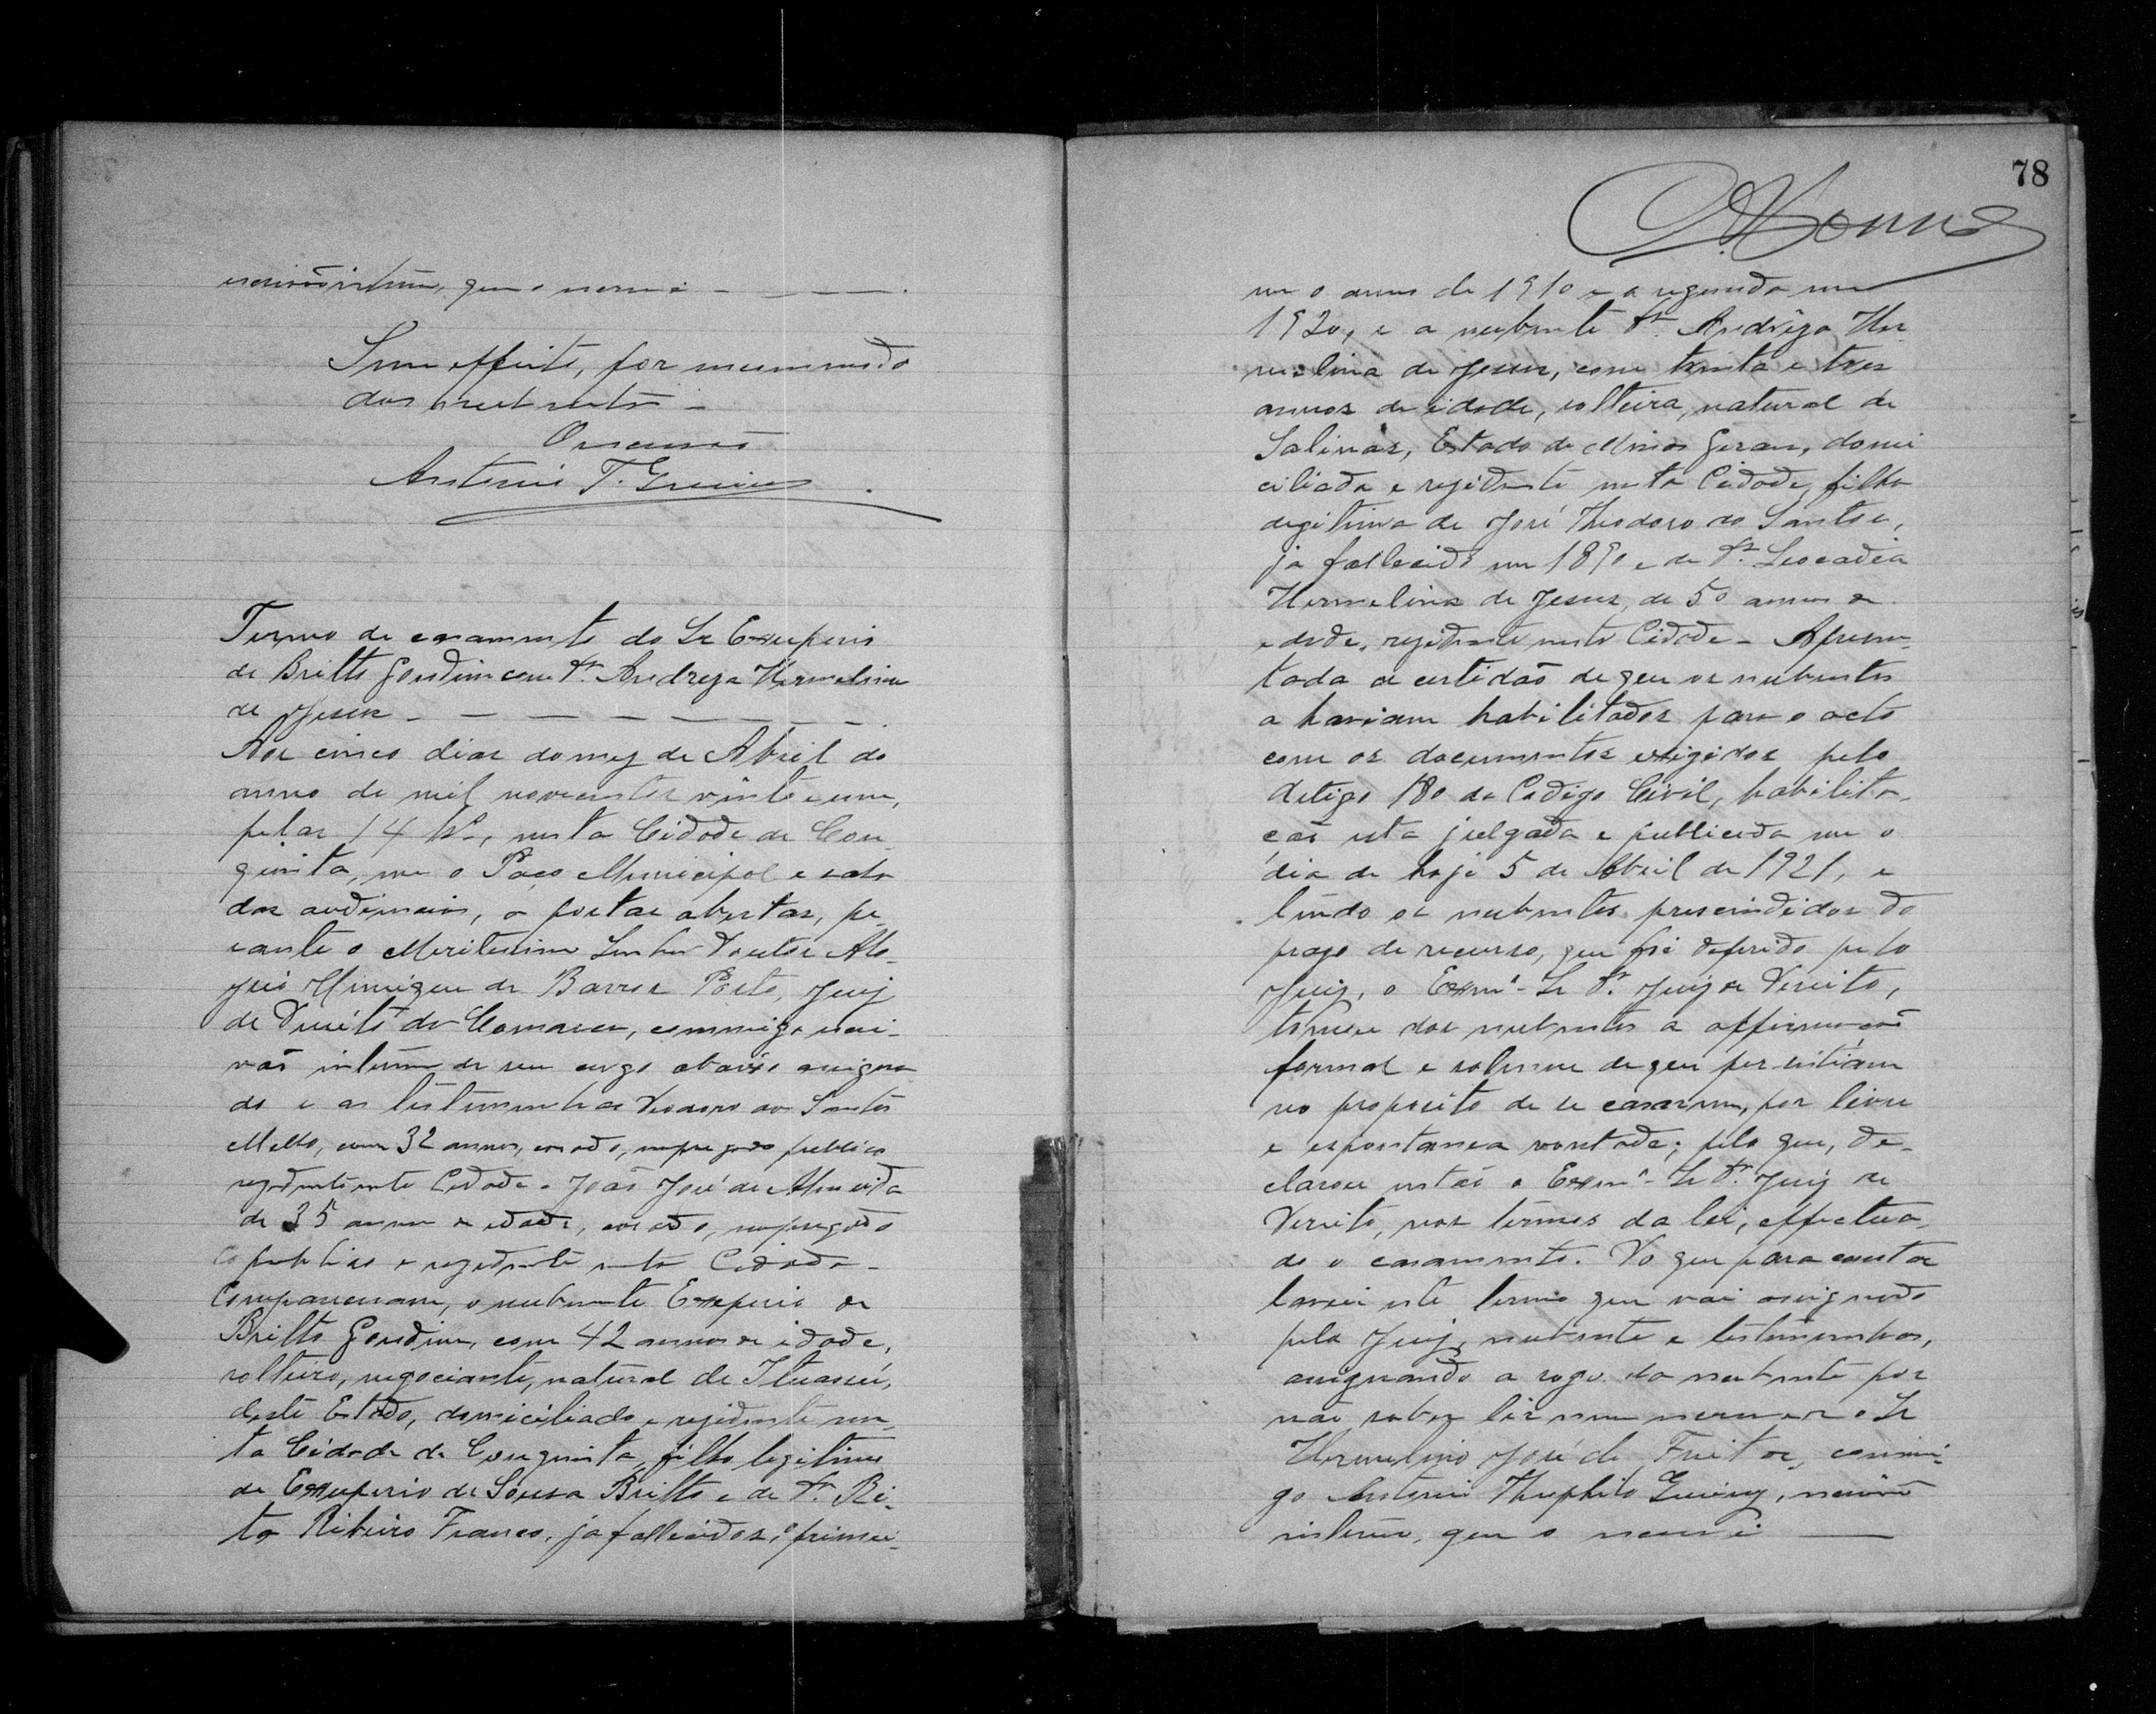 escrivão interino, que o escrevi
Sem effeito, por
dos nubentes
O escrivão
Antonio T.
Termo de casamento do Sr Exuperio
de Britto Gondim com Dª. Andreza Hermelina
de Jesus
Aos cinco dias do mez de Abril do
anno de mil novecentos vinte e um,
pelas 14 hs, nesta Cidade de Con-
quista, em o Paço Municipal e sala
das audiencias, a portas abertas, pe-
rante o Meritissimo Senhor Doutor Alo-
ysio Henrique de Barros Porto, Juiz
de Direito da Comarca, commigo escri-
vão interino de seu cargo abaixo assigna-
do e as testemunhas Deodoro dos Santos
Mello, com 32 annos, casado, empregado publico
residente nesta Cidade e João José de Almeida
de 35 annos de edade, casado, empregado
publico e residente nesta Cidade
Compareceram, o nubente Exuperio de
Britto Gondim, com 42 annos de idade,
solteiro, negociante, natural de Ituassú,
deste Estado, domiciliado e residente nes-
ta Cidade de Conquista, filho legitimo
de Exuperio de Sousa Britto e de Dª. Ri-
ta Ribeiro Franco, ja fallecidos, o primei-
78
em o anno de 1910 e a segunda em
1920, e a nubente Dª. Andrêza Her-
melina de Jesus, com trinta e tres
annos de idade, solteira, natural de
Salinas, Estado de Minas Geraes, domi
ciliada e residente nesta Cidade, filha
legitima de José Theodoro dos Santos,
ja fallecido em 1890 e de Dª. Leocadia
Hermelina de Jesus, de 50 annos de
edade, residente nesta Cidade - Apresen-
tada a certidão de que os nubentes
se haviam habilitados para o acto
com os documentos exigidos pelo
Artigo 180 do Codigo Civil, habilita-
ção esta julgada e publicada em o
dia de hoje 5 de Abril de 1921, e
tendo os nubentes prescindidos do
prazo de recurso, que foi deferido pelo
Juiz, o Exmº Sr Dr. Juiz de Direito,
tomou dos nubentes a affirmação
formal e solemne de que persistiam
no proposito de se casarem, por livre
e espontanea vontade; pelo que, de-
clarou então o Exmº Sr Dr. Juiz de
Direito, nos termos da lei, effectua-
do o casamento. Do que para constar
lavrei este termo que vai assignado
pelo Juiz, nubente e testemunhas,
assignando a rogo da nubente por
não saber ler nem escrever o Sr
Hermelino José de Freitas, commi-
go Antonio Theophilo, escrivão
interino, que o escrevi